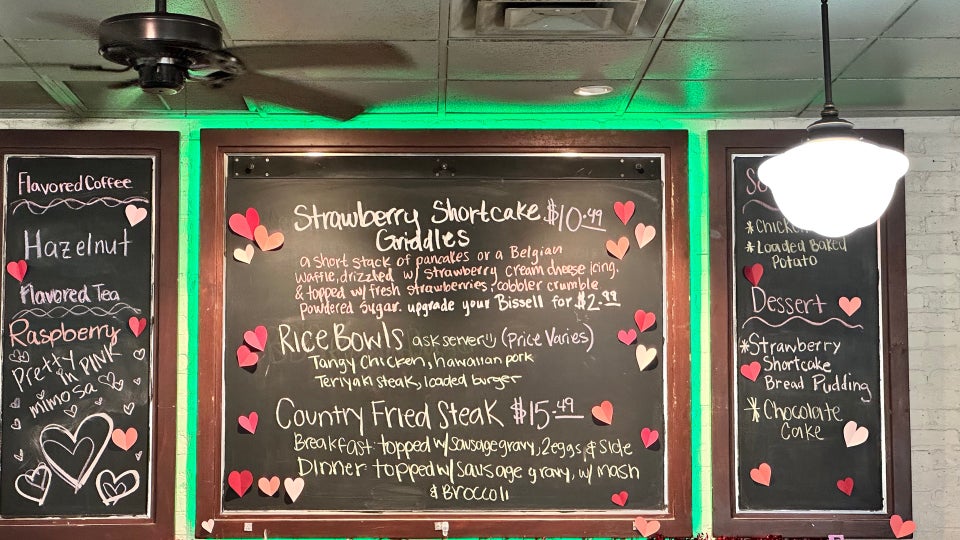 Flavored Coffee
Hazelnut
Flavored Tea
Raspberry
Pretty
in Pink
mimosa
Strawberry Shortcake $10.49
Griddles
a short stack of pancakes or a Belgian
waffle, drizzled w/ strawberry cream cheese icing,
& topped w/ fresh strawberries, cobbler crumble
powdered sugar. upgrade your Bissell for $2.99
Rice Bowls ask server (Price Varies)
Tangy Chicken, hawaiian pork
Teriyaki steak, loaded burger
Country Fried Steak $15.49
Breakfast- topped w/ sausage gravy, 2 eggs, & side
Dinner- topped w/ sausage gravy, w/ mash
& Broccoli
*Loaded Baked
Potato
Dessert
*Strawberry
Shortcake
Bread Pudding
*Chocolate
Cake